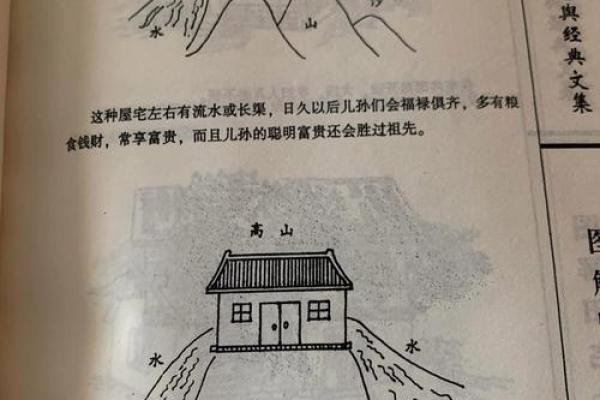 水
山
这种屋宅左右有流水或长渠，日久以后儿孙们会福禄俱齐，多有粮
食钱财，常享富贵，而且儿孙的聪明富贵还会胜过祖先。
高山
水
水
舆经典文集